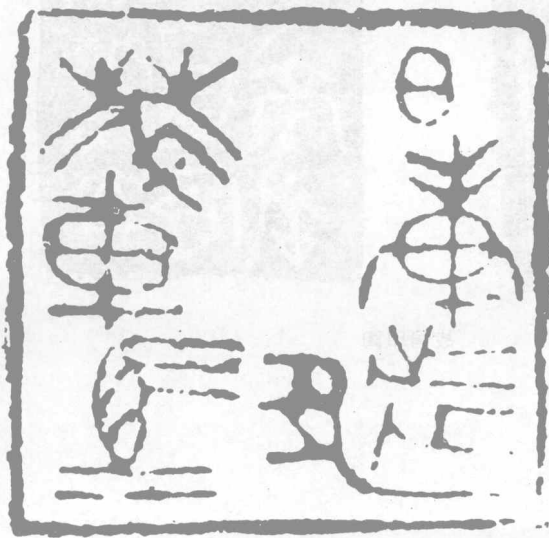 日庚都
萃車馬